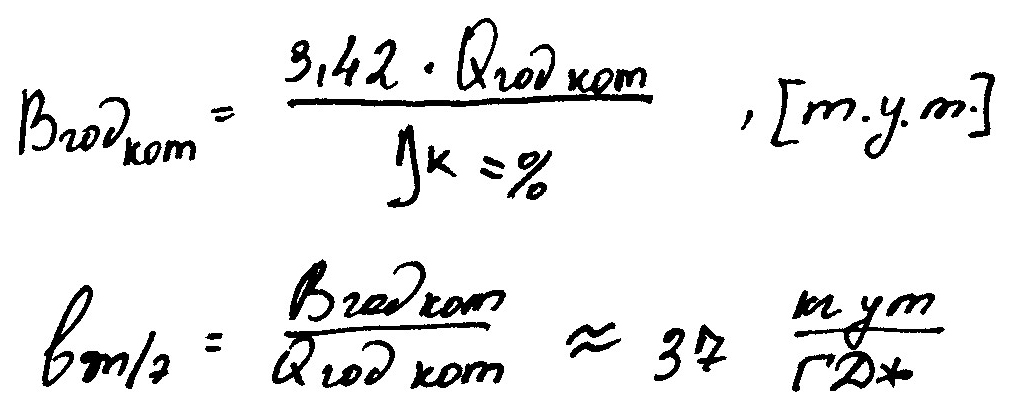 Bгод кот = 3,42 · Qгод кот / ηк = % , [т.у.т.]
bт/э = Bгод кот / Qгод кот ≈ 37 кг ут / ГДж